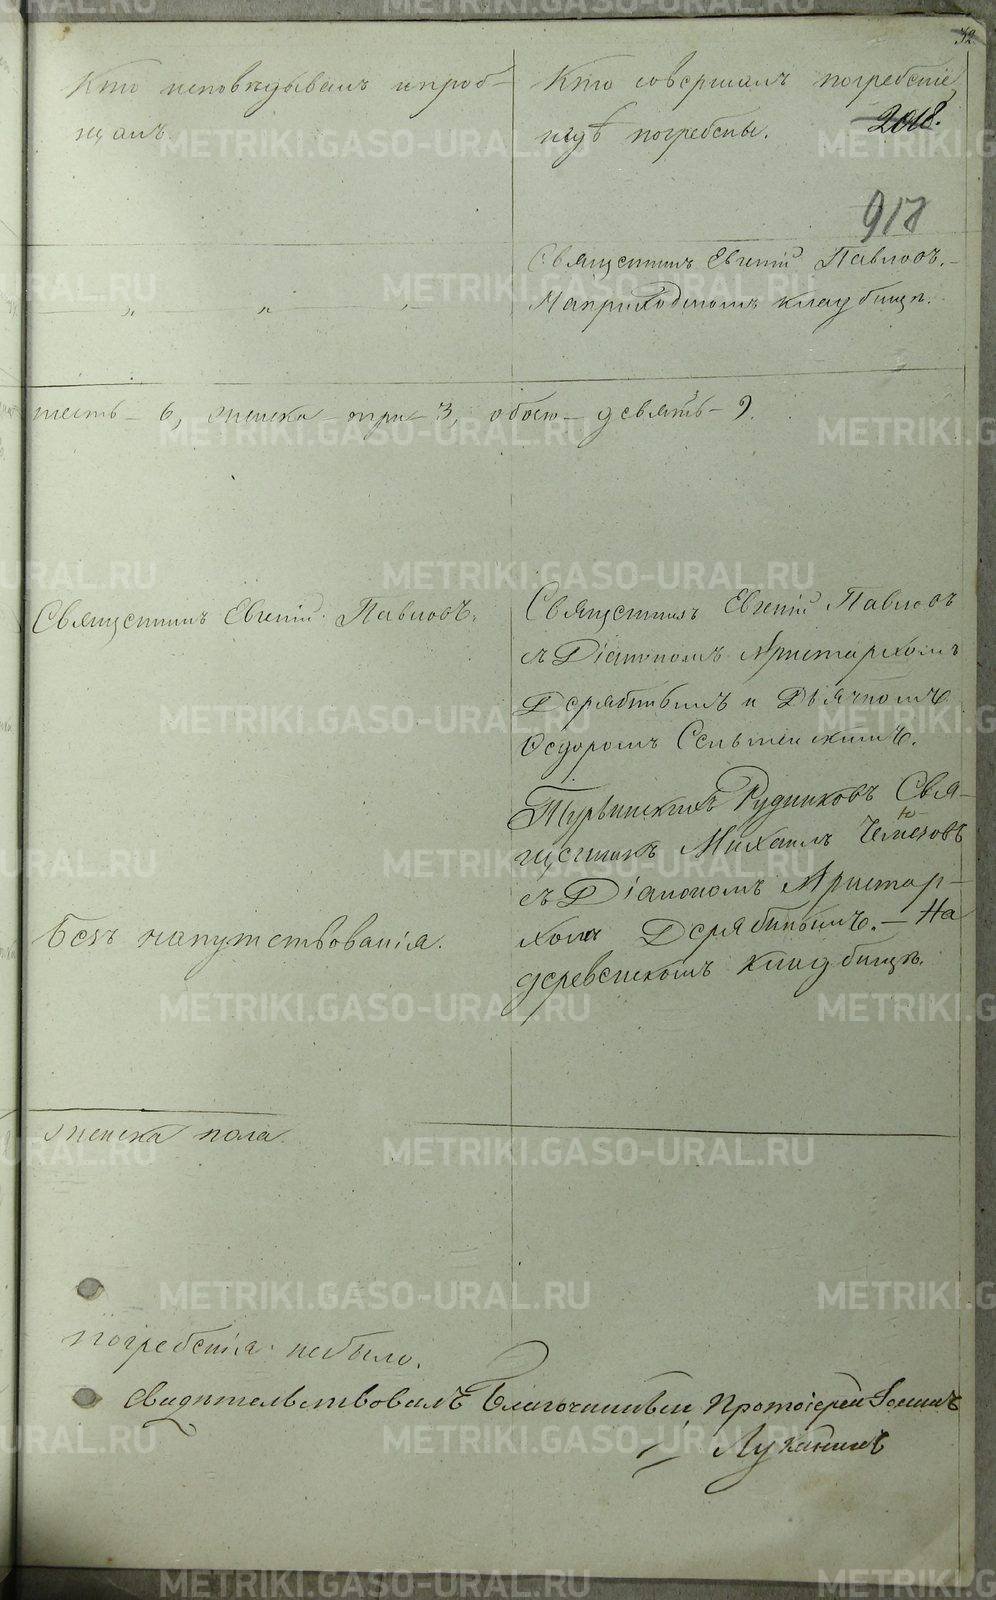 32
Кто исповѣдывалъ и пріоб-
щалъ.
Кто совершалъ погребеніе
и гдѣ погребены.
2018.
917
Священникъ Евгеній Павловъ.—
На приходскомъ кладбищѣ.
„ „ „
шесть — 6, женска — три — 3, обоего — девять — 9.
Священникъ Евгеній Павловъ.
Священникъ Евгеній Павловъ
съ Діакономъ Аристархомъ
Дерябинымъ и Дьячкомъ
Ѳедоромъ
Турьинскихъ Рудниковъ Свя-
щенникъ Михаилъ
съ Діакономъ Аристар-
хомъ Дерябинымъ. — На
деревенскомъ кладбищѣ.
Безъ напутствованія.
женска пола
погребенія не было.
Свидѣтельствовалъ Благочинный Протоіерей Іоаннъ
Луканинъ
METRIKI.GASO-URAL.RU